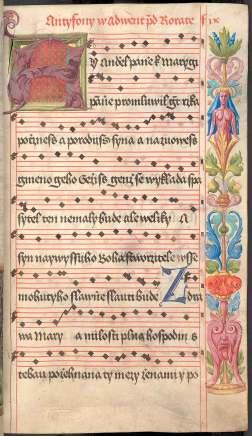 Antyfony w adwent pd Rorate ix
Andel panie k marygi
panie promluwil
počzness a porodiss syna a nazuowess
gmeno geho Gezijs genz se wyklada spa
sytel ten nemaly bude ale weliky A
syn naywyssiho Boha stworzitele wsse
mohutyho slawnie slauti bude Zdra
wa Mary a milosti plna hospodin s
tebau požehnana ty mezy ženami y po